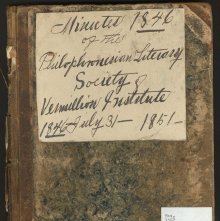 Minutes 1846
of the
Philophronesian Literary
Society of
Vermillion Institute
1846 July 31 — 1851 —